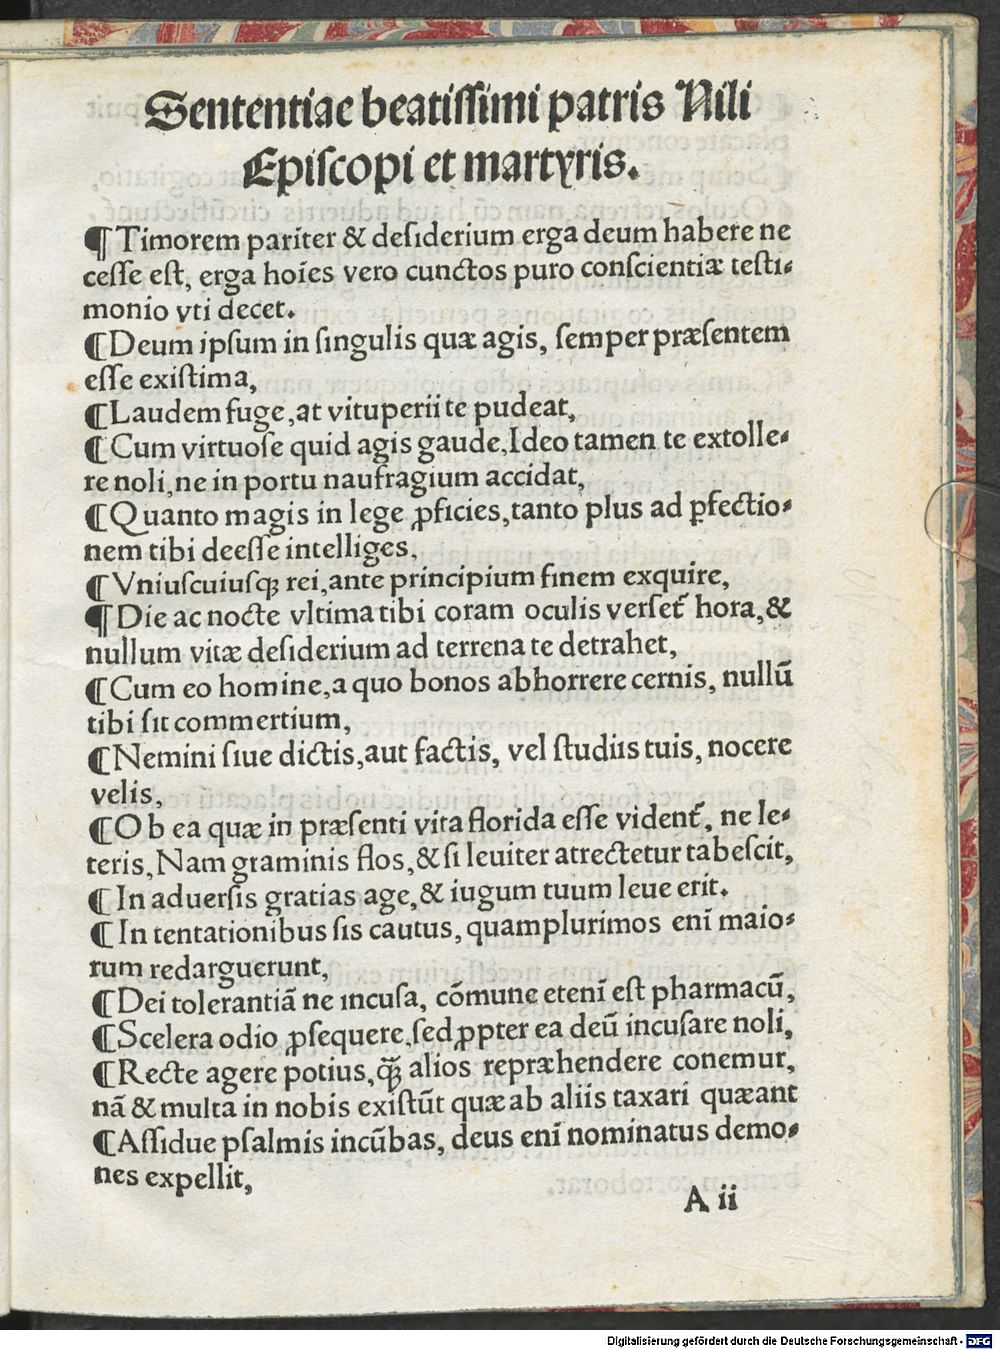 Sententiae beatissimi patris Nili
Episcopi et martyris.
¶ Timorem pariter & desiderium erga deum habere ne
cesse est, erga hoīes vero cunctos puro conscientiæ testi-
monio vti decet.
¶ Deum ipsum in singulis quæ agis, semper præsentem
esse existima,
¶ Laudem fuge, at vituperii te pudeat,
¶ Cum virtuose quid agis gaude, Ideo tamen te extolle-
re noli, ne in portu naufragium accidat,
¶ Quanto magis in lege ꝓficies, tanto plus ad ꝑfectio-
nem tibi deesse intelliges.
¶ Vniuscuiusqꝫ rei, ante principium finem exquire,
¶ Die ac nocte vltima tibi coram oculis verset̄ hora, &
nullum vitæ desiderium ad terrena te detrahet,
¶ Cum eo homine, a quo bonos abhorrere cernis, nullū
tibi sit commertium,
¶ Nemini siue dictis, aut factis, vel studiis tuis, nocere
velis,
¶ Ob ea quæ in præsenti vita florida esse vident̄, ne le-
teris, Nam graminis flos, & si leuiter atrectetur tabescit,
¶ In aduersis gratias age, & iugum tuum leue erit.
¶ In tentationibus sis cautus, quamplurimos enī maio-
rum redarguerunt,
¶ Dei tolerantiā ne incusa, cōmune etenī est pharmacū,
¶ Scelera odio ꝓsequere, sed ꝓpter ea deū incusare noli,
¶ Recte agere potius, qꝫ̄ alios repræhendere conemur,
nā & multa in nobis existūt quæ ab aliis taxari quæant
¶ Assidue psalmis incūbas, deus enī nominatus demo-
nes expellit,
A ii
Digitalisierung gefördert durch die Deutsche Forschungsgemeinschaft - DFG